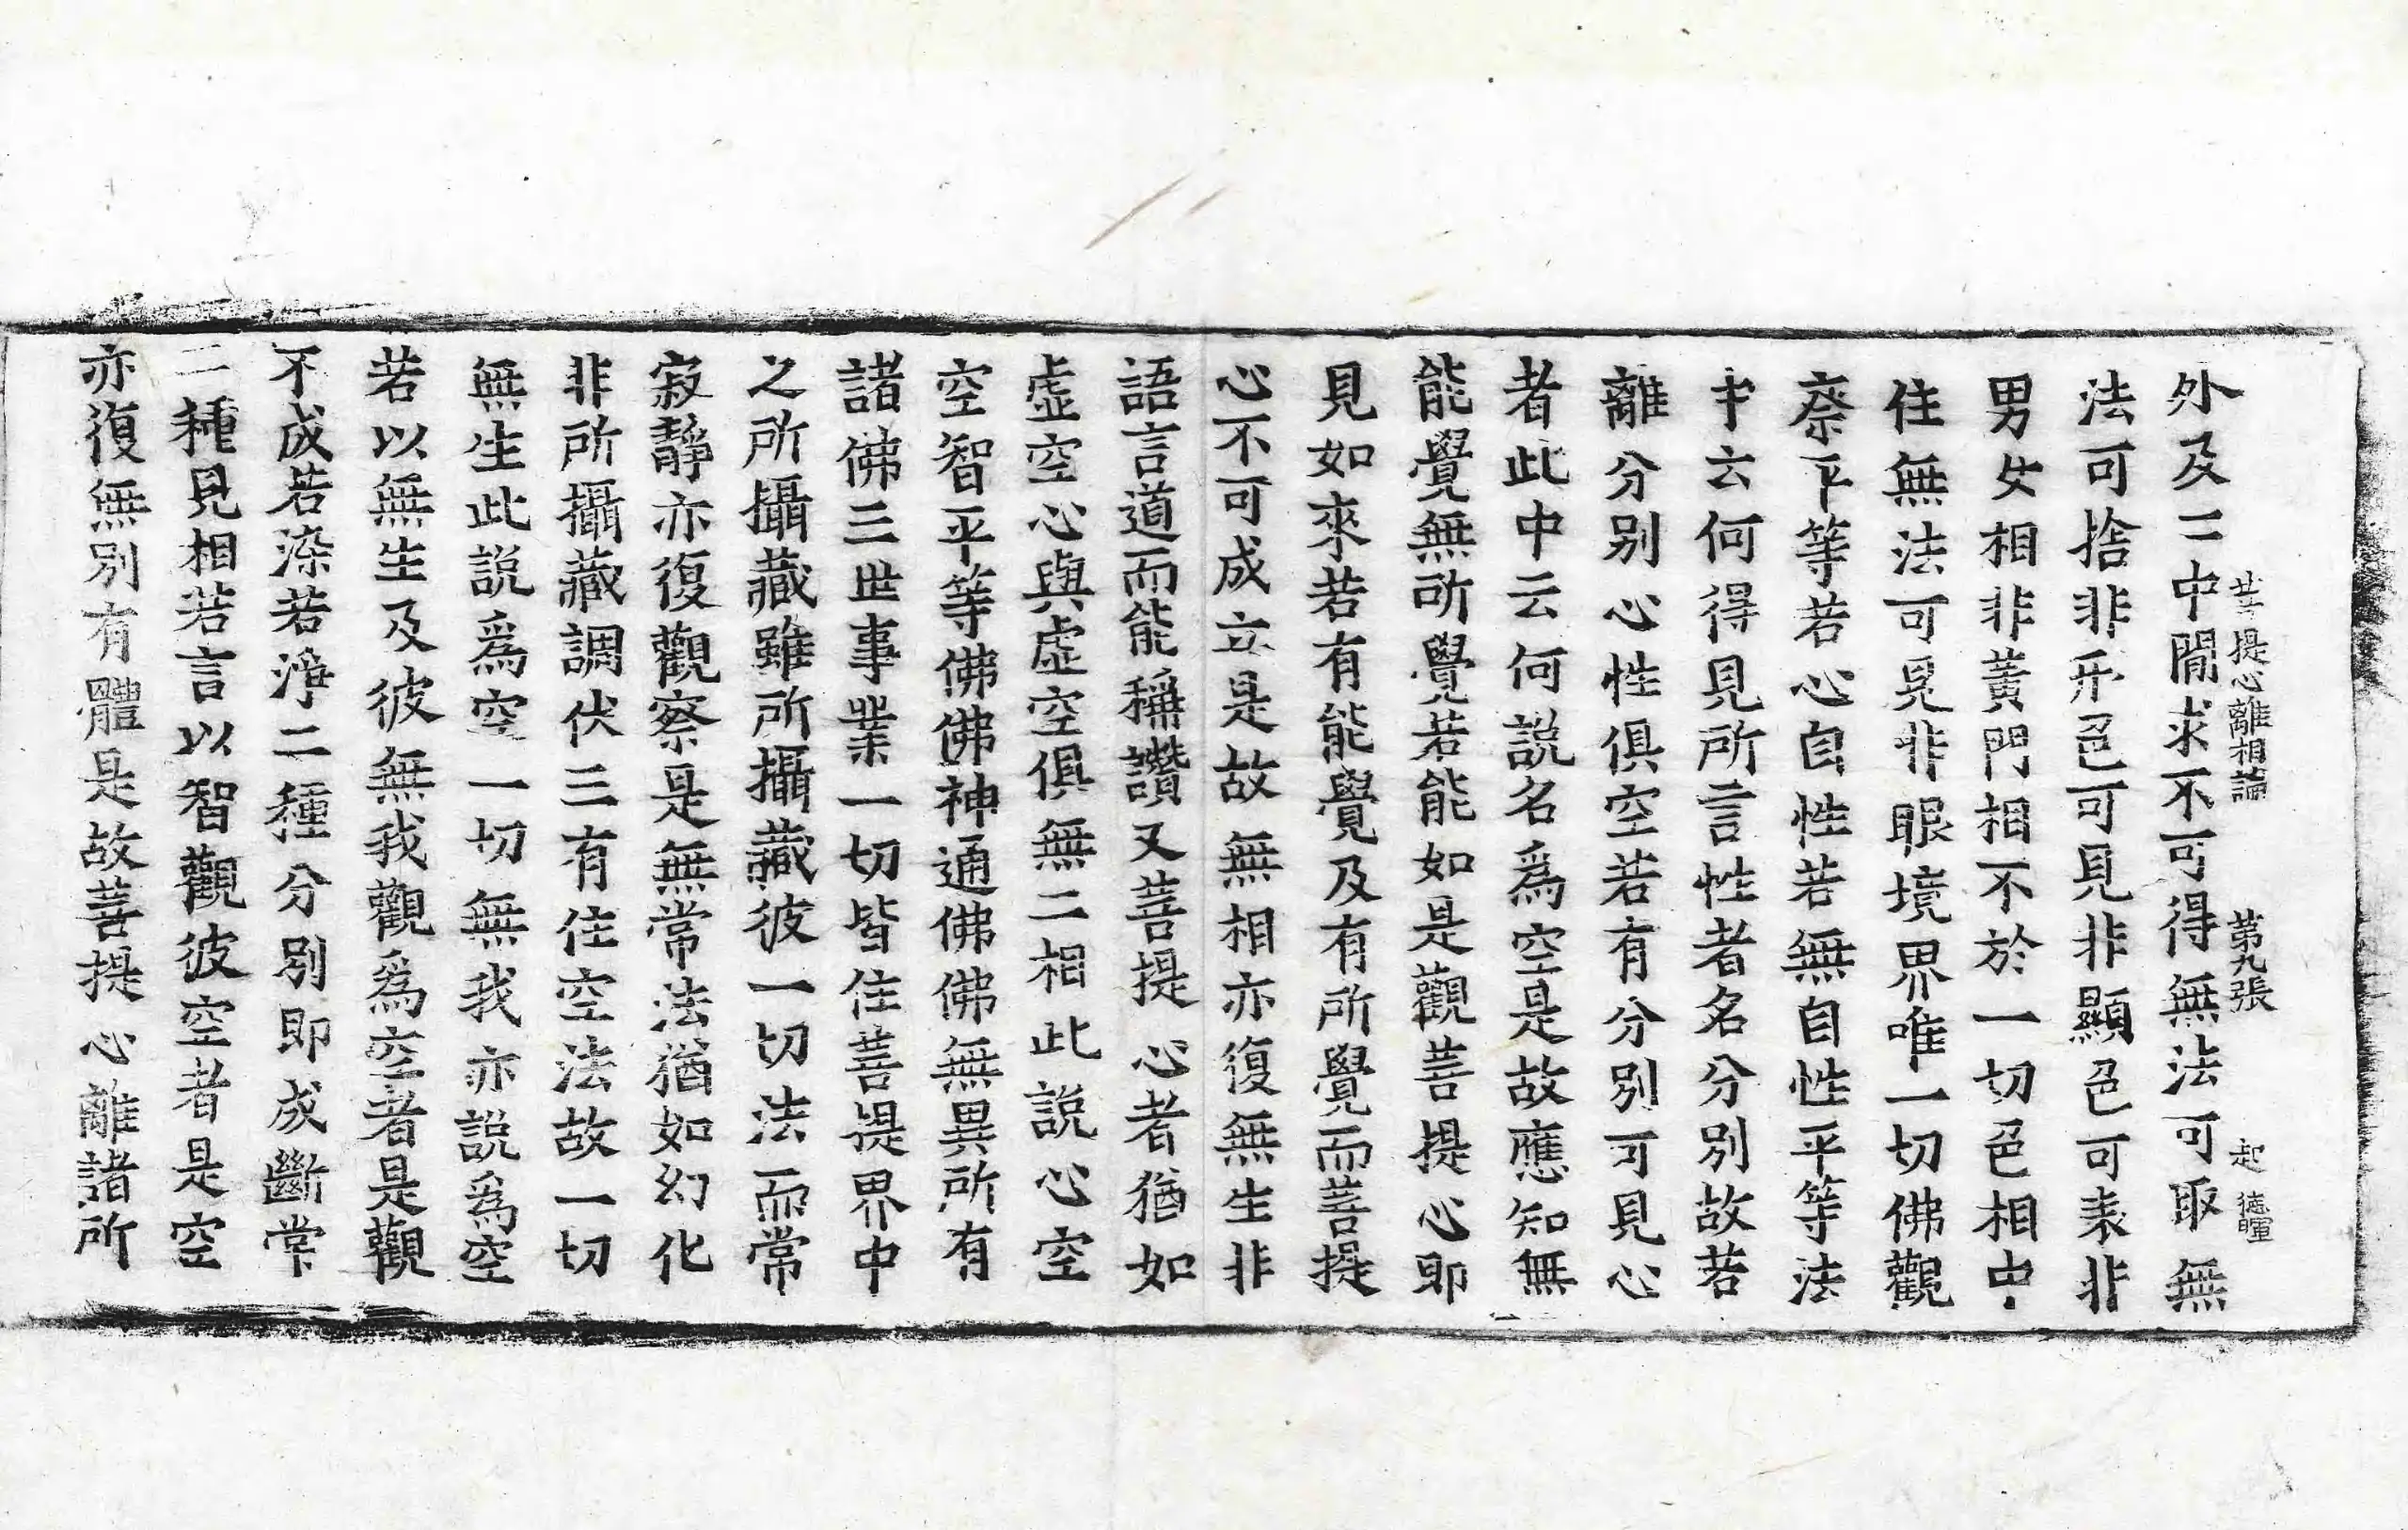 菩提心離相論 第九張 起 德暉
外及二中閒求不可得無法可取無
法可捨非形色可見非顯色可表非
男女相非黃門相不於一切色相中
住無法可見非眼境界唯一切佛觀
察平等若心自性若無自性平等法
中云何得見所言性者名分別故若
離分别心性俱空若有分別可見心
者此中云何說名爲空是故應知無
能覺無所覺若能如是觀菩提心即
見如來若有能覺及有所覺而菩提
心不可成立是故無相亦復無生非
語言道而能稱讚又菩提心者猶如
虛空心與虛空俱無二相此說心空
空智平等佛佛神通佛佛無異所有
諸佛三世事業一切皆住菩提界中
之所攝藏雖所攝藏彼一切法而常
寂靜亦復觀察是無常法猶如幻化
非所攝藏調伏三有住空法故一切
無生此說爲空一切無我亦說爲空
若以無生及彼無我觀爲空者是觀
不成若染若淨二種分別即成斷常
二種見相若言以智觀彼空者是空
亦復無別有體是故菩提心離諸所